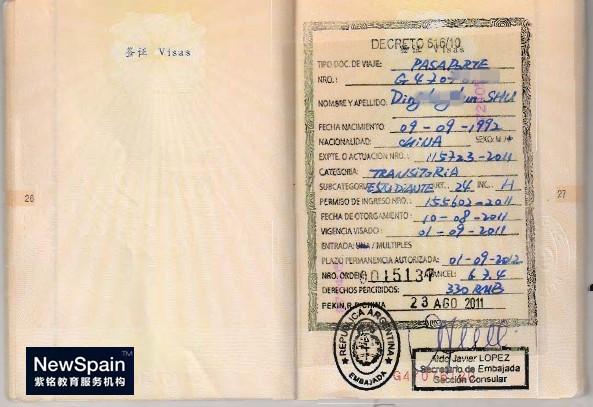 签证 Visas
26
NewSpain™
紫铭教育服务机构
DECRETO 616/10
签证 Visas
TIPO DOC. DE VIAJE: PASAPORTE
NRO.: G4707
NOMBRE Y APELLIDO: SHU
FECHA NACIMIENTO: 09-09-1992
NACIONALIDAD: CHINA SEXO: M/
EXPTE. O ACTUACION NRO.: 115723-2011
CATEGORIA: TRANSITORIA
SUBCATEGORIA: ESTUDIANTE ART. 24 INC. H
PERMISO DE INGRESO NRO.: 155602-2011
FECHA DE OTORGAMIENTO: 10-08-2011
VIGENCIA VISADO: 01-09-2011
ENTRADA: UNA / MULTIPLES
PLAZO PERMANENCIA AUTORIZADA: 01-09-2012
NRO. ORDEN 0015137 ARANCEL: 6.7.4
DERECHOS PERCIBIDOS: 330 RMB
PEKIN, R.P. CHINA 23 AGO 2011
27
REPUBLICA ARGENTINA
EMBAJADA
Aldo Javier LOPEZ
Secretario de Embajada
Sección Consular